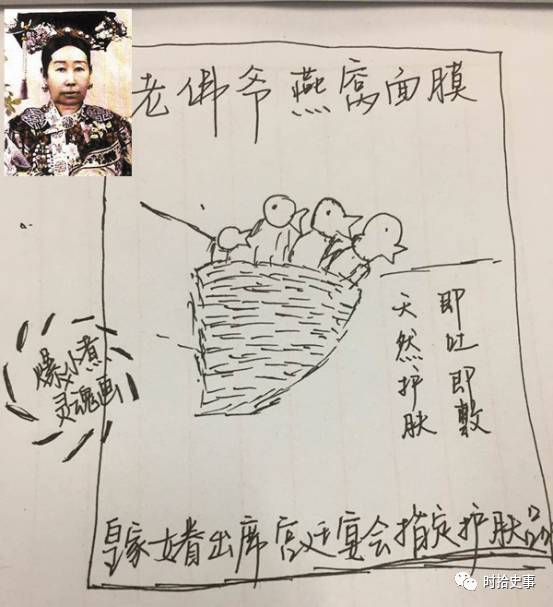 老佛爷燕窝面膜
即吐即敷
天然护肤
爆小煮
灵魂画
皇家女眷出席宫廷宴会指定护肤品
时拾史事